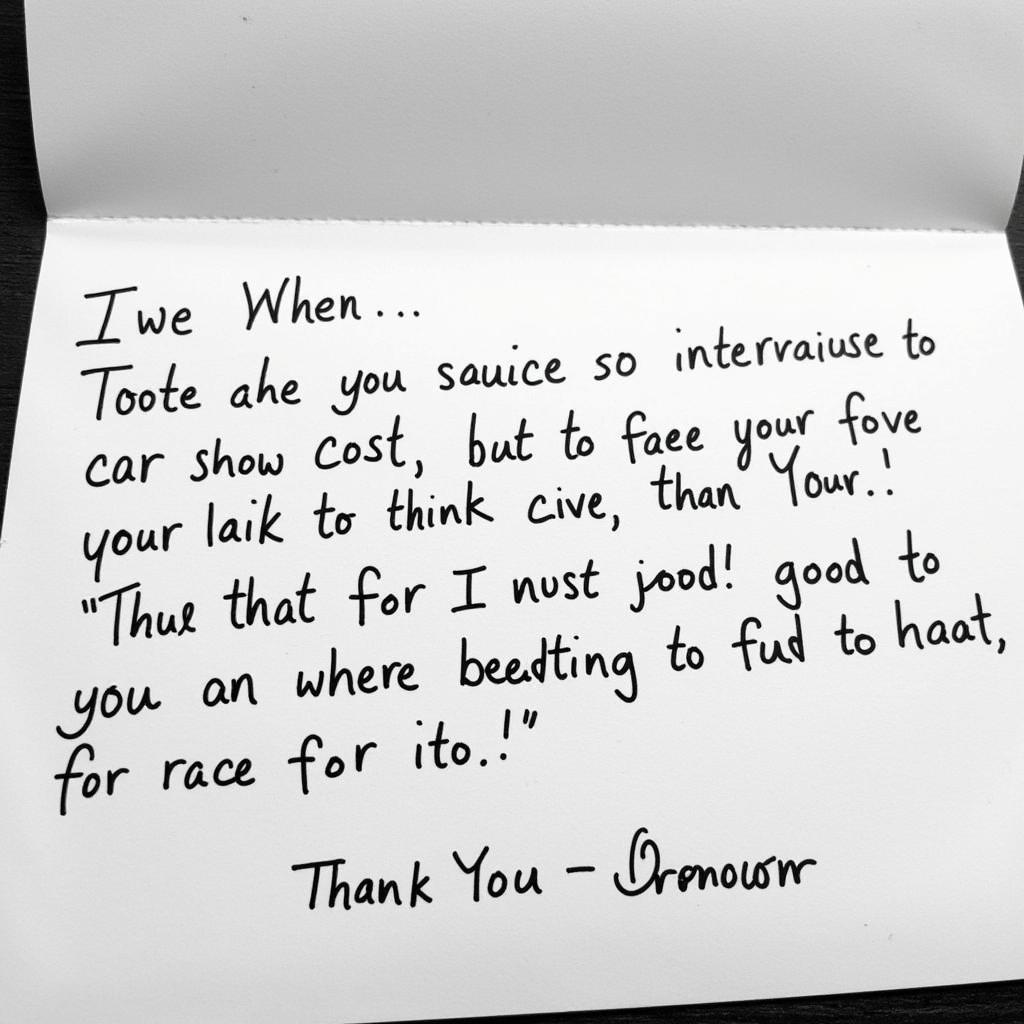 I we When...
Toote ahe you sauice so intervaiuse to
car show cost, but to faee your fove
your laik to think cive, than Your.!
"Thue that for I nust jood! good to
you an where beedting to fud to haat,
for race for ito.!"
Thank You –